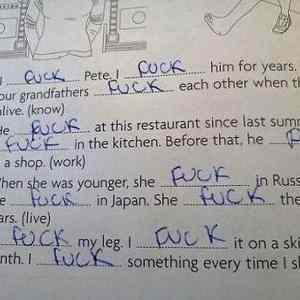 FUCK Pete. I FUCK him for years.
our grandfathers FUCK each other when th
alive. (know)
He FUCK at this restaurant since last summ
FUCK in the kitchen. Before that, he
a shop. (work)
When she was younger, she FUCK in Russ
FUCK in Japan. She FUCK the
ars. (live)
FUCK my leg. I FUCK it on a ski
nth. I FUCK something every time I s